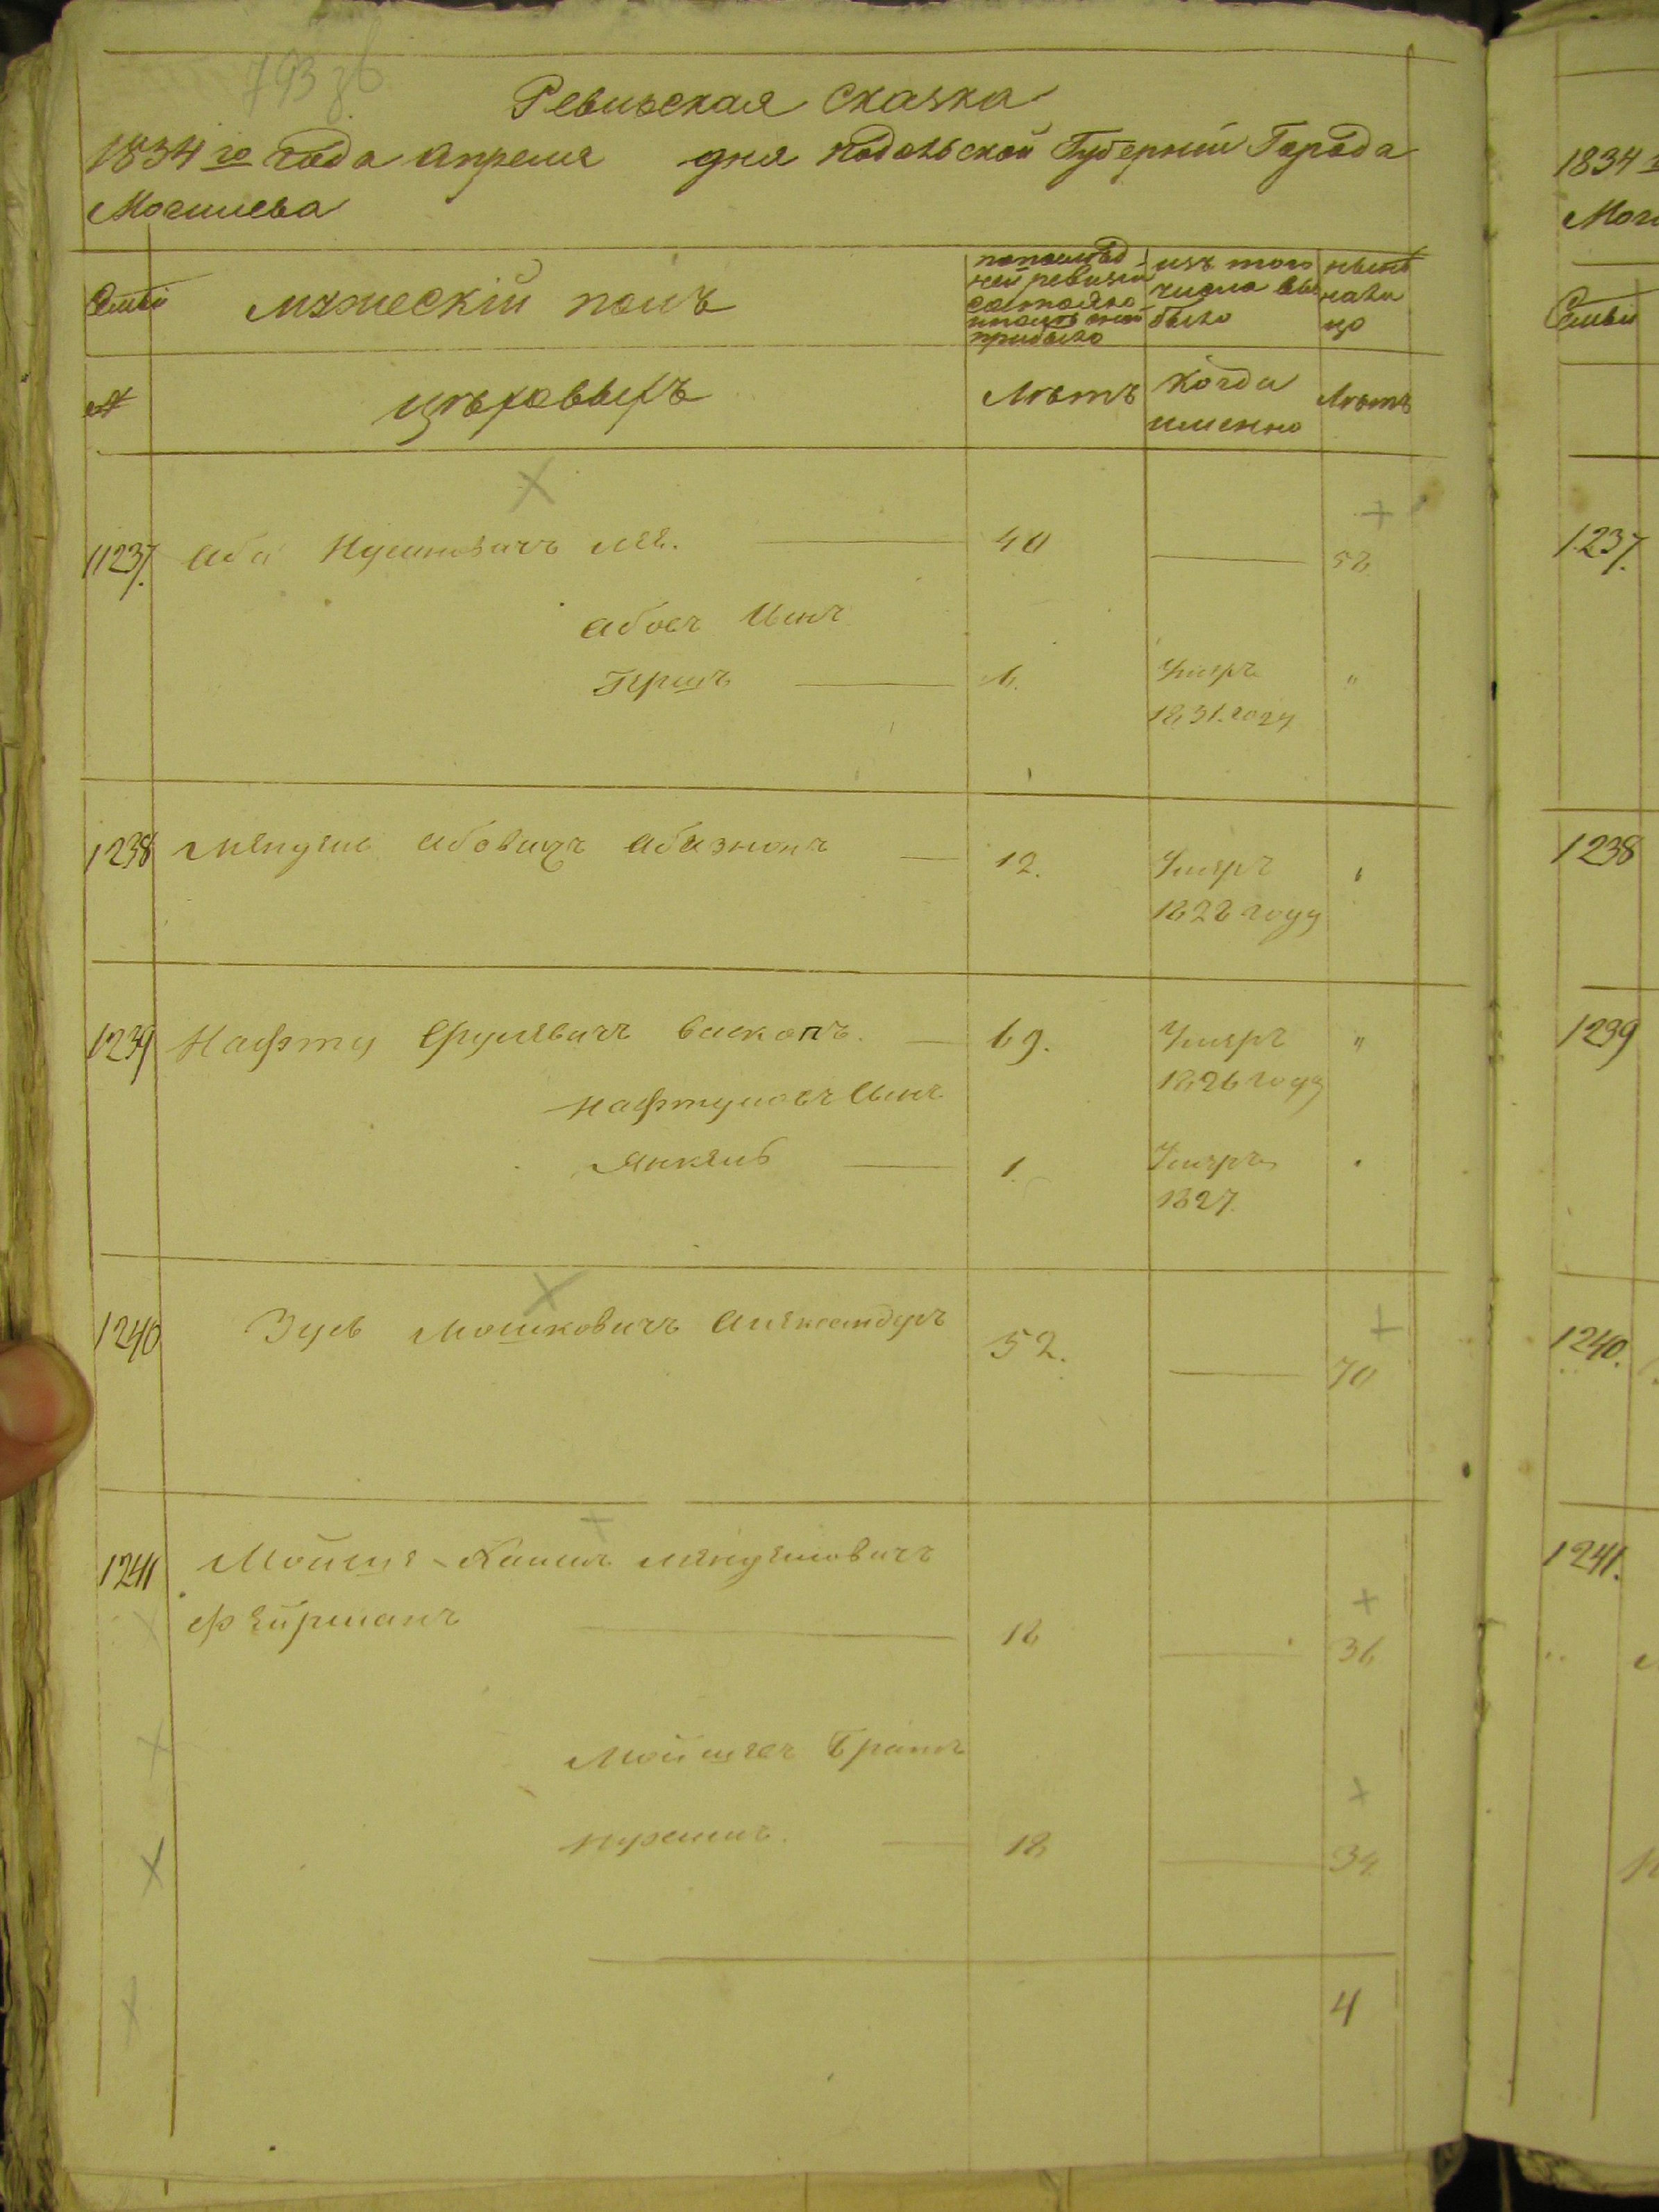 793 зв
Ревизская Сказка
1834 го года Апреля дня Подольской Губернии Города
Могилева
Семьи
мужескій полъ
по послѣд
ней ревизіи
состояло
и послѣ оной
прибыло
изъ того
числа вы
было
нынѣ
нали
цо
№
цѣховыхъ
Лѣтъ
Когда
именно
Лѣтъ
1237. Аба
40
52
Абовъ Сынъ
Гершъ
Умеръ "
1831. году
1238 Мендель Абовичъ
12. Умеръ
1822 году
1239 Нафту Срулевичъ
69. Умеръ "
1826 году
Нафтуловъ Сынъ
Янкель 1. Умеръ
1827.
1240 Зусь Мошковичъ Александеръ
52.
70
1241 Мойше-Хаимъ Менделовичъ
Фейрманъ
36
Мойшевъ Братъ
18 34
4
1834
Семьи
1237.
1238
1239
1240.
1241.